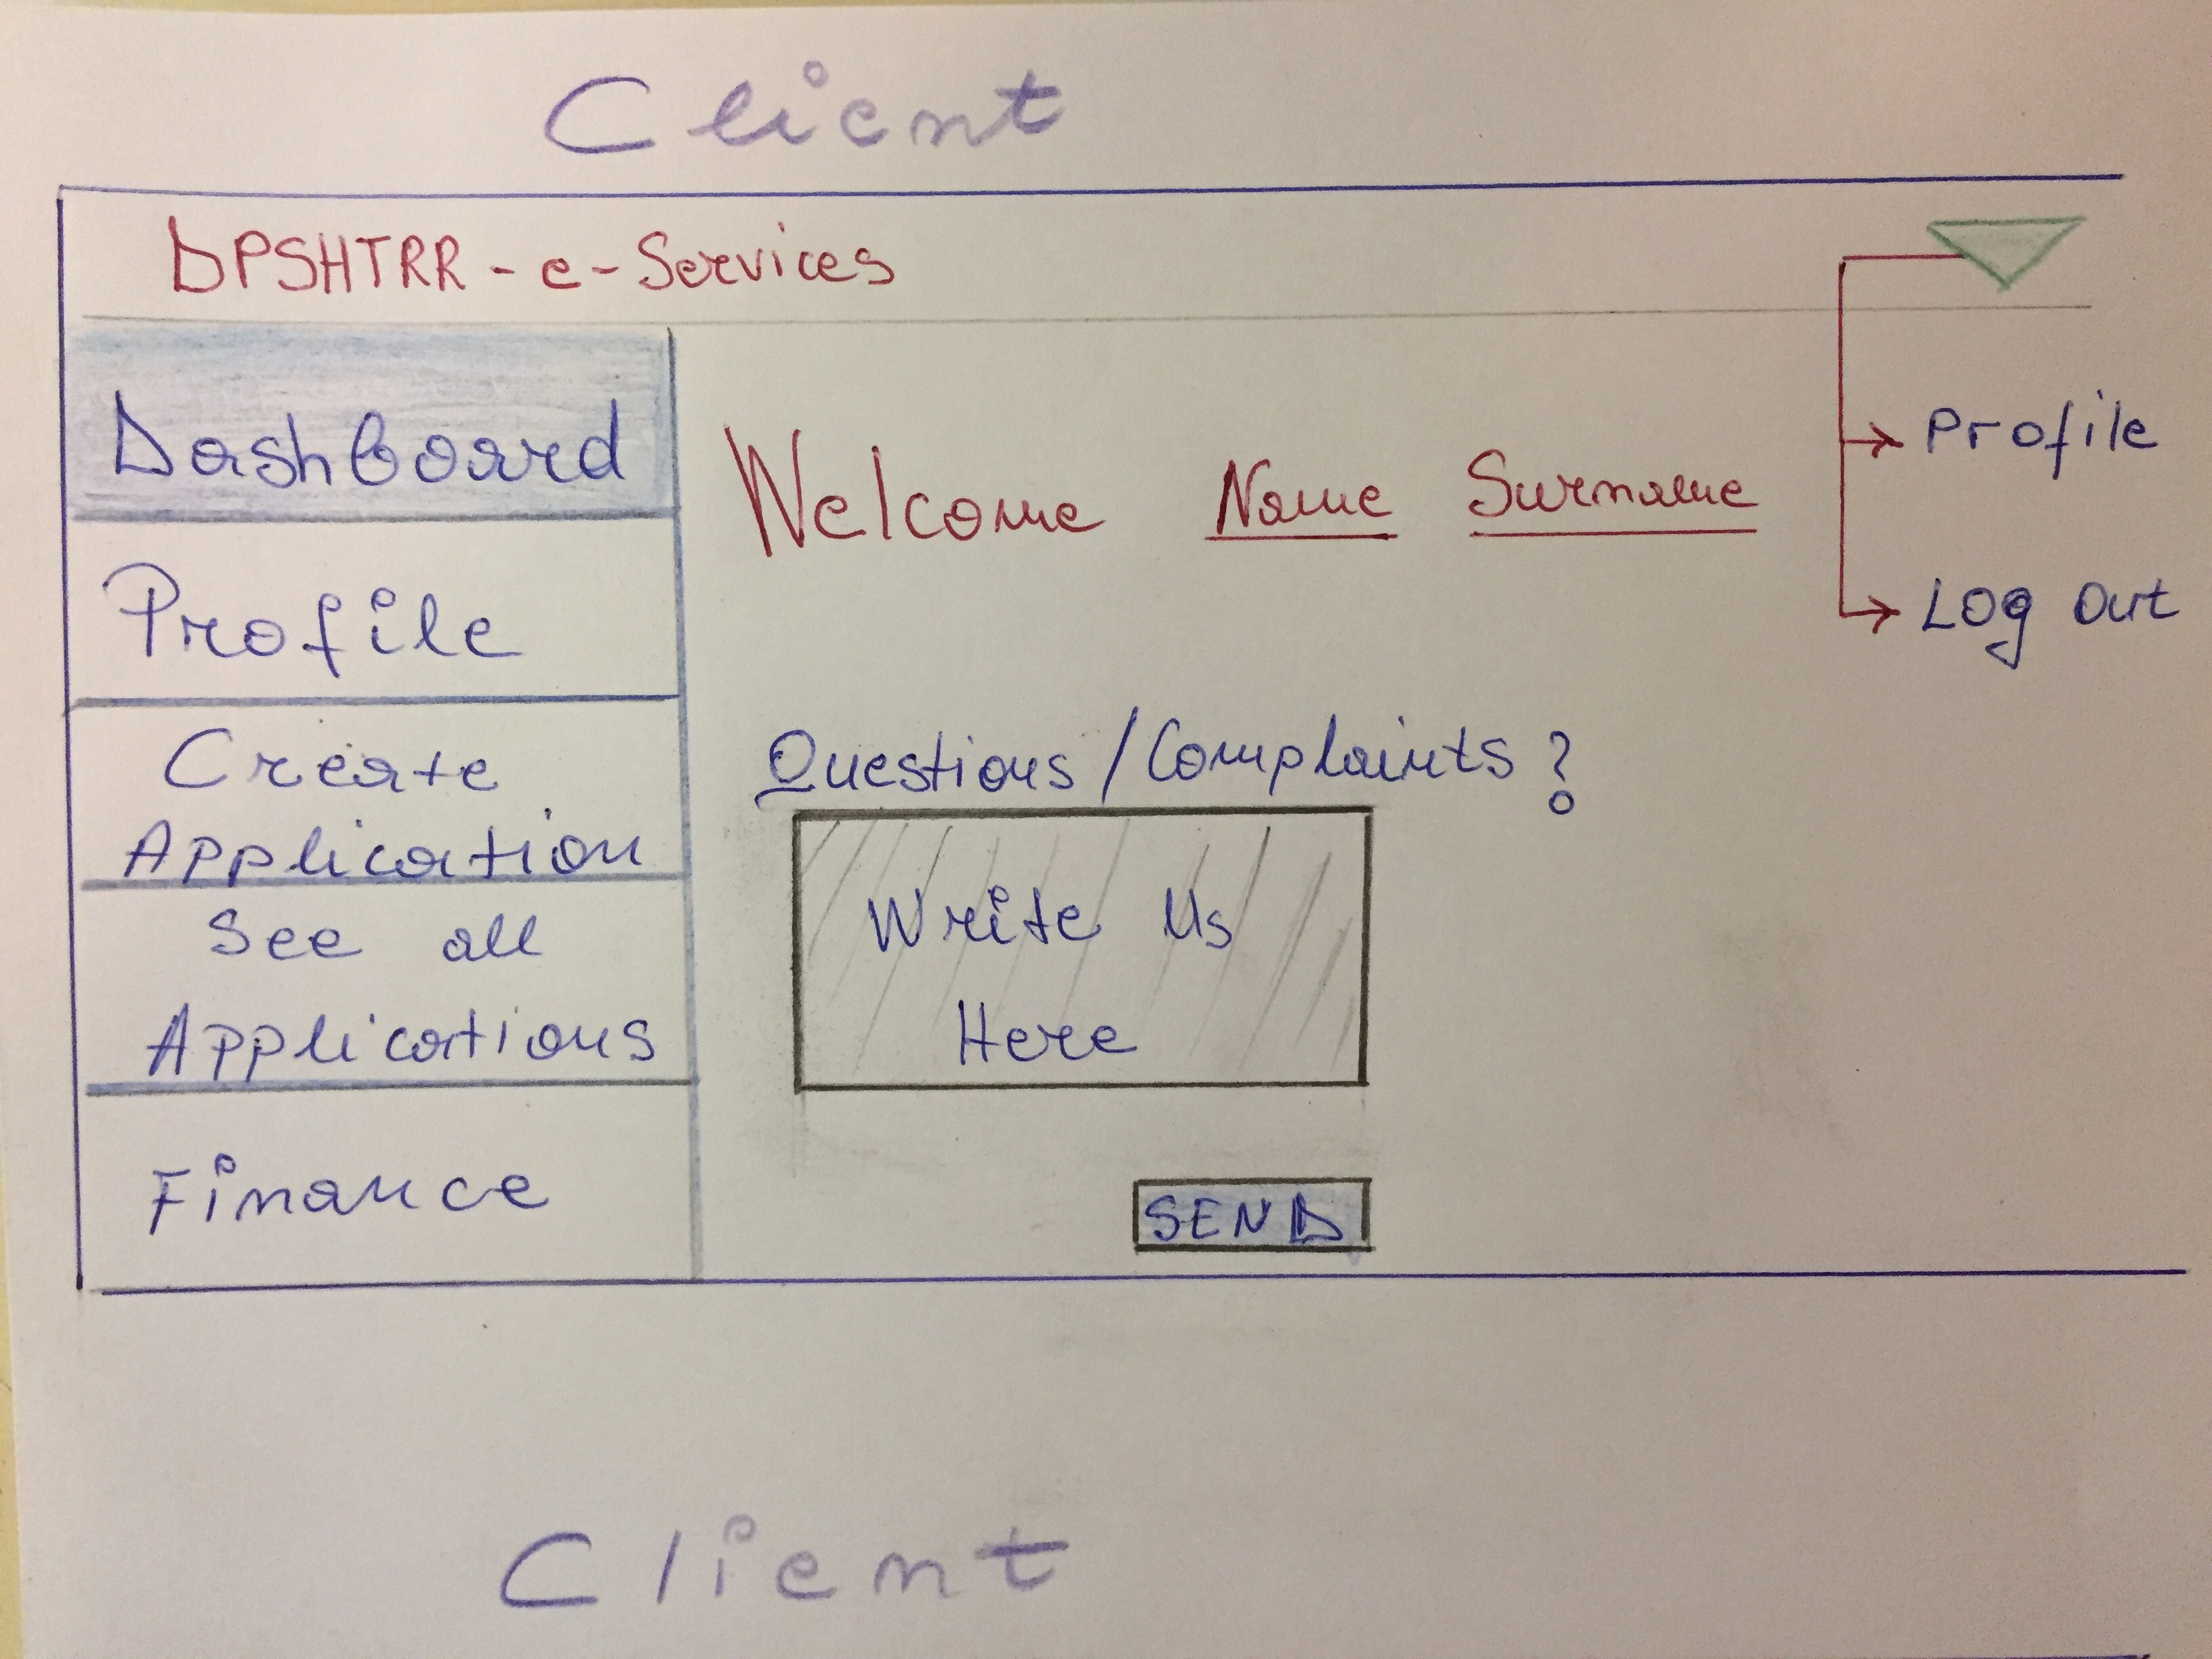 Client
DPSHTRR - e-Services
Dashboard
Profile
Create
Application
See all
Applications
Finance
Welcome Name Surname
Questions/Complaints?
Write Us
Here
SEND
Profile
Log Out
Client